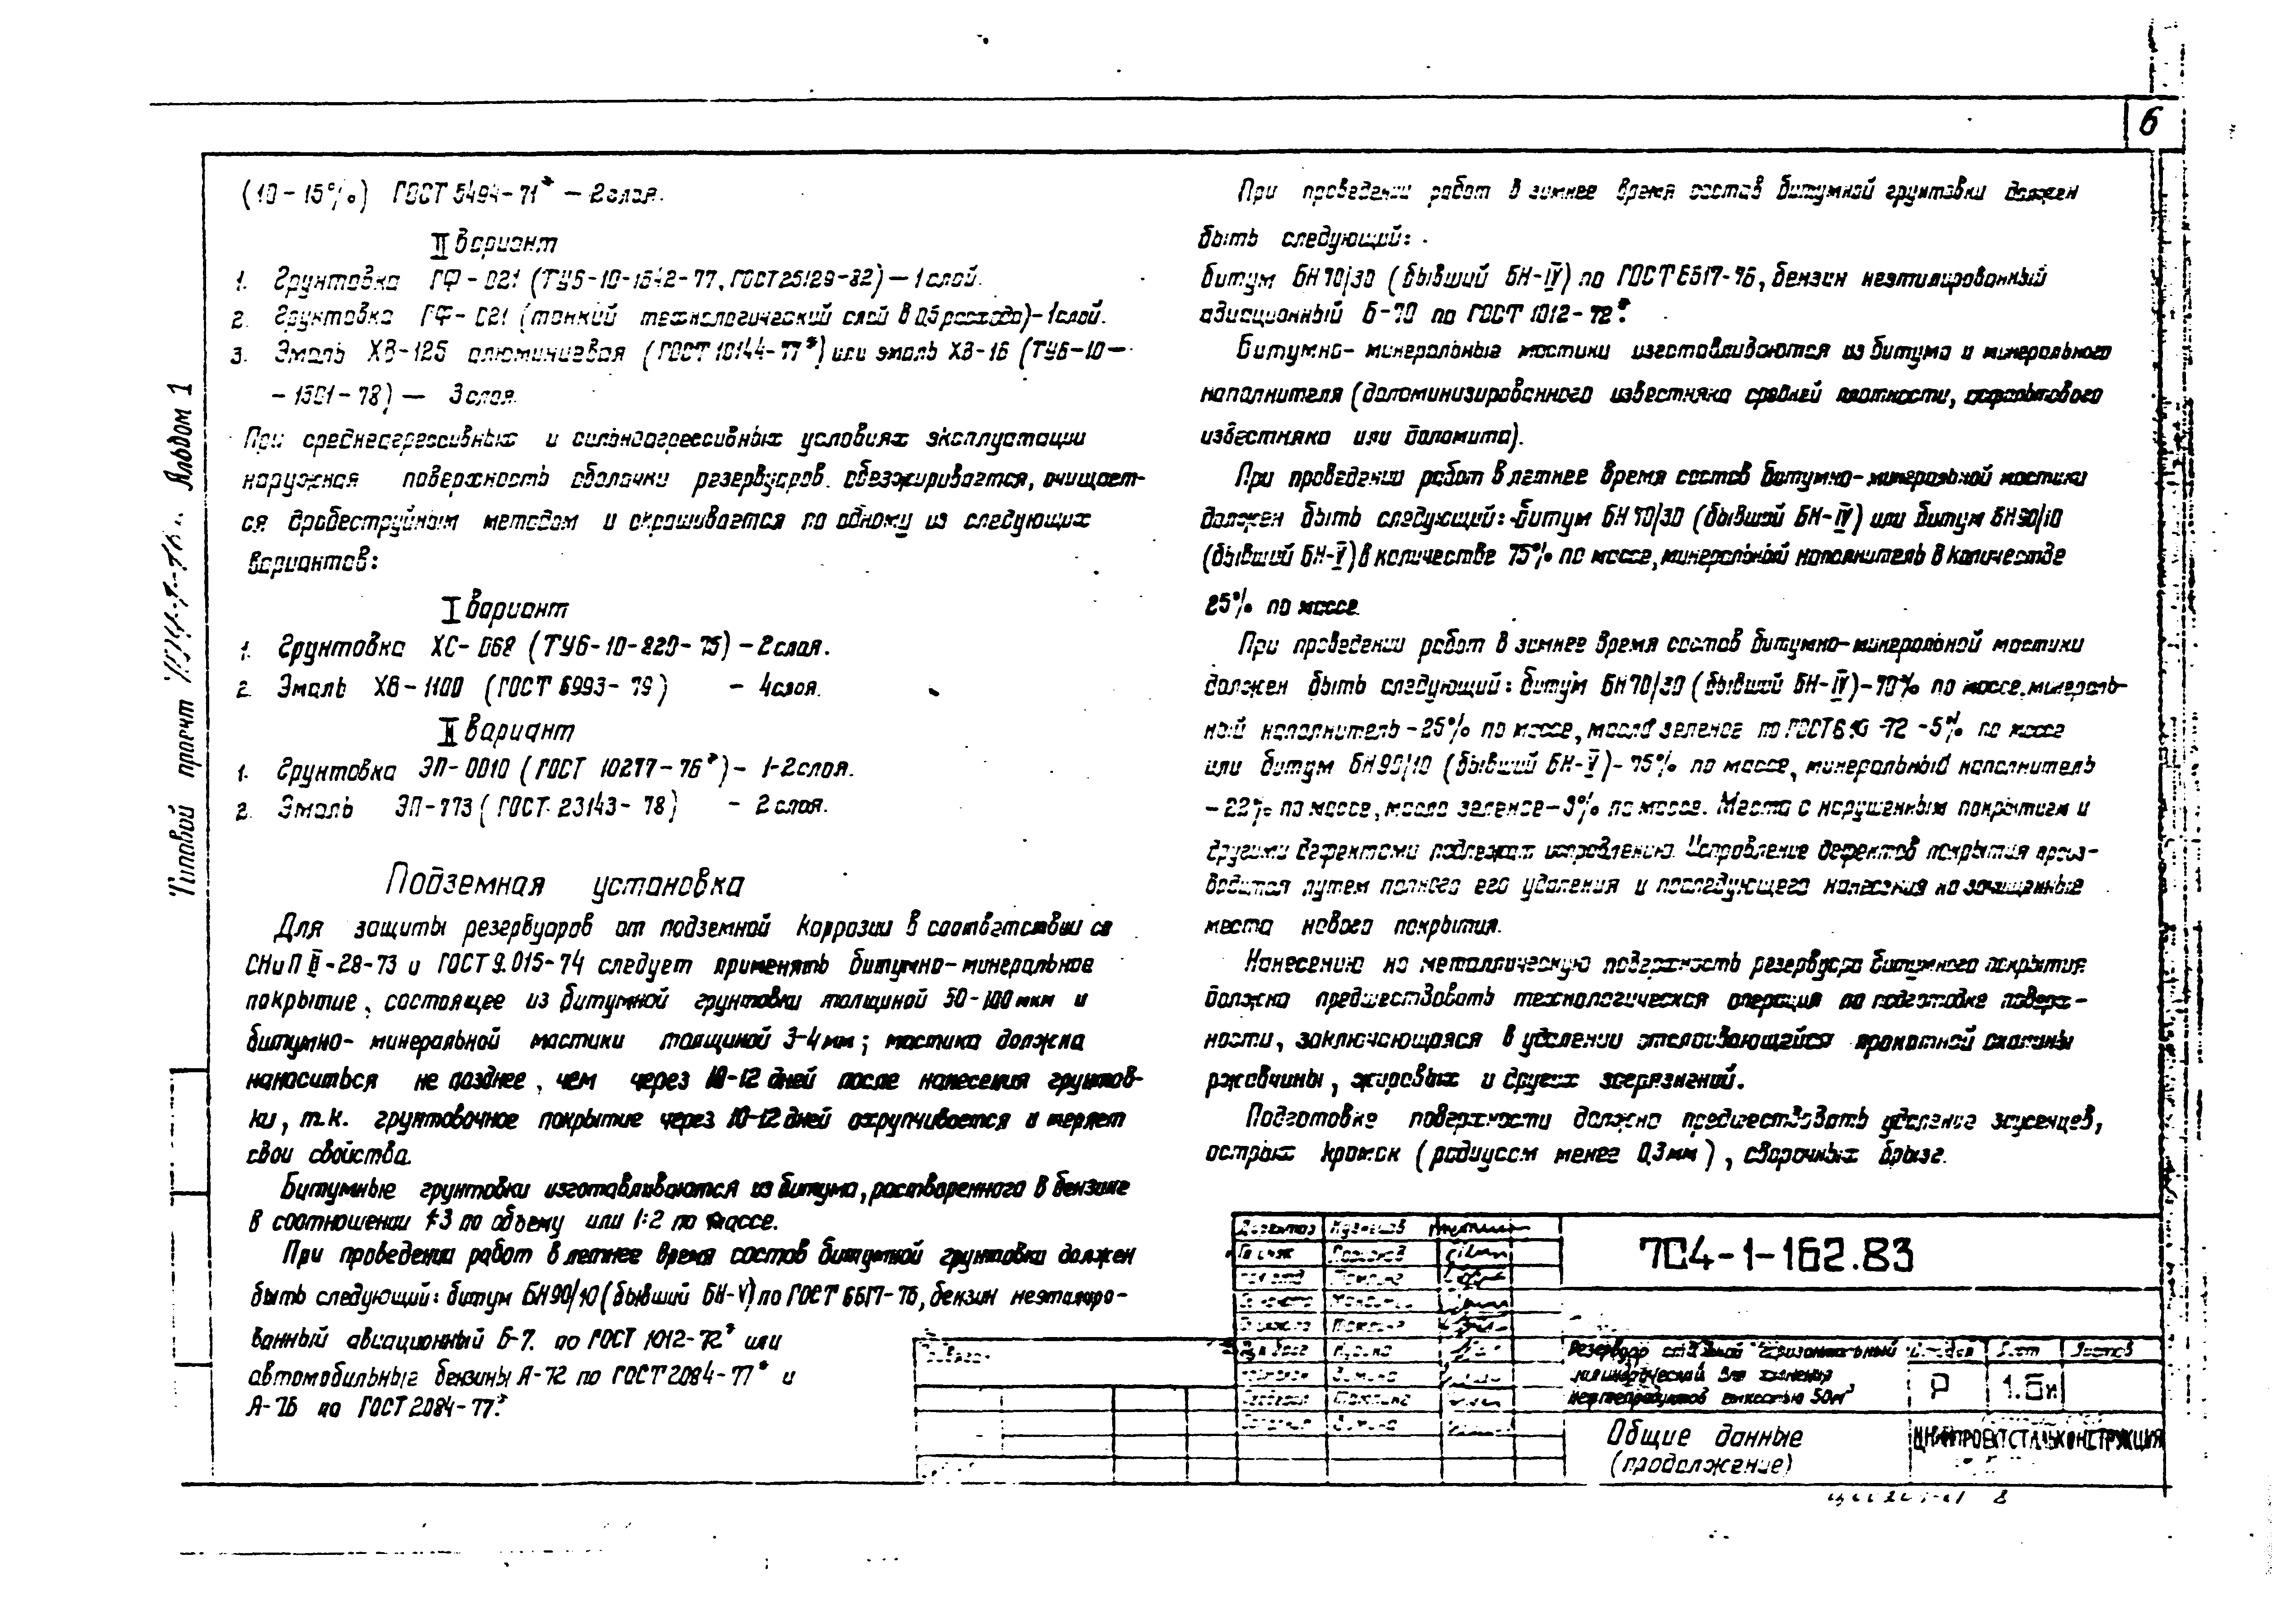 6
(10-15%) ГОСТ 5494-71* — 2слоя.
II вариант
1. Грунтовка ГФ-021 (ТУ6-10-1642-77, ГОСТ 25129-82) — 1 слой.
2. Грунтовка ГФ-021 (тонкий технологический слой в 0,5 расхода)-1слой.
3. Эмаль ХВ-125 алюминиевая (ГОСТ 10144-77*) или эмаль ХВ-16 (ТУ6-10-
-1301-78) — 3слоя.
При среднеагрессивных и сильноагрессивных условиях эксплуатации
наружная поверхность оболочки резервуаров обезжиривается, очищает-
ся дробеструйным методом и окрашивается по одному из следующих
вариантов:
I вариант
1. Грунтовка ХС-068 (ТУ6-10-820-75) - 2слоя.
2. Эмаль ХВ-1100 (ГОСТ 6993-79) - 4слоя.
II вариант
1. Грунтовка ЭП-0010 (ГОСТ 10277-76*) - 1-2слоя.
2. Эмаль ЭП-773 (ГОСТ 23143-78) - 2 слоя.
Подземная установка
Для защиты резервуаров от подземной коррозии в соответствии со
СНиП II-28-73 и ГОСТ 9.015-74 следует применять битумно-минеральное
покрытие, состоящее из битумной грунтовки толщиной 50-100 мкм и
битумно-минеральной мастики толщиной 3-4мм; мастика должна
наноситься не позднее, чем через 10-12 дней после нанесения грунтов-
ки, т.к. грунтовочное покрытие через 10-12 дней охрупчивается и теряет
свои свойства.
Битумные грунтовки изготавливаются из битума, растворенного в бензине
в соотношении 1:3 по объему или 1:2 по массе.
При проведении работ в летнее время состав битумной грунтовки должен
быть следующий: битум БН90/10 (бывший БН-V) по ГОСТ 6617-76, бензин неэтилиро-
ванный авиационный Б-7. по ГОСТ 1012-72* или
автомобильные бензины А-72 по ГОСТ 2084-77* и
А-76 по ГОСТ 2084-77*.
При проведении работ в зимнее время состав битумной грунтовки должен
быть следующий:
битум БН 70/30 (бывший БН-IV) по ГОСТ 6617-76, бензин неэтилированный
авиационный Б-70 по ГОСТ 1012-72*.
Битумно-минеральные мастики изготавливаются из битума и минерального
наполнителя (доломинизированного известняка средней плотности, асфальтового
известняка или доломита).
При проведении работ в летнее время состав битумно-минеральной мастики
должен быть следующий: битум БН 70/30 (бывший БН-IV) или битум БН90/10
(бывший БН-V) в количестве 75% по массе, минеральный наполнитель в количестве
25% по массе.
При проведении работ в зимнее время состав битумно-минеральной мастики
должен быть следующий: битум БН70/30 (бывший БН-IV)-70% по массе, минераль-
ный наполнитель -25% по массе, масло зеленое по -72 -5% по массе
или битум БН90/10 (бывший БН-V)- 75% по массе, минеральный наполнитель
-22% по массе, масло зеленое-3% по массе. Места с нарушенным покрытием и
другими дефектами подлежат исправлению. Исправление дефектов покрытия произ-
водится путем полного его удаления и последующего нанесения на зачищенные
места нового покрытия.
Нанесению на металлическую поверхность резервуара битумного покрытия
должна предшествовать технологическая операция по подготовке поверх-
ности, заключающаяся в удалении отслаивающейся прокатной окалины
ржавчины, жировых и других загрязнений.
Подготовке поверхности должно предшествовать удаление заусенцев,
острых кромок (радиусом менее 0,3мм), сварочных брызг.
Типовой проект Альбом 1
704-1-162.83
Резервуар стальной горизонтальный
цилиндрический для хранения
нефтепродуктов емкостью 50м³
Стадия Лист Листов
Р 1.6и
Общие данные
(продолжение)
ЦНИИПРОЕКТСТАЛЬКОНСТРУКЦИЯ
8